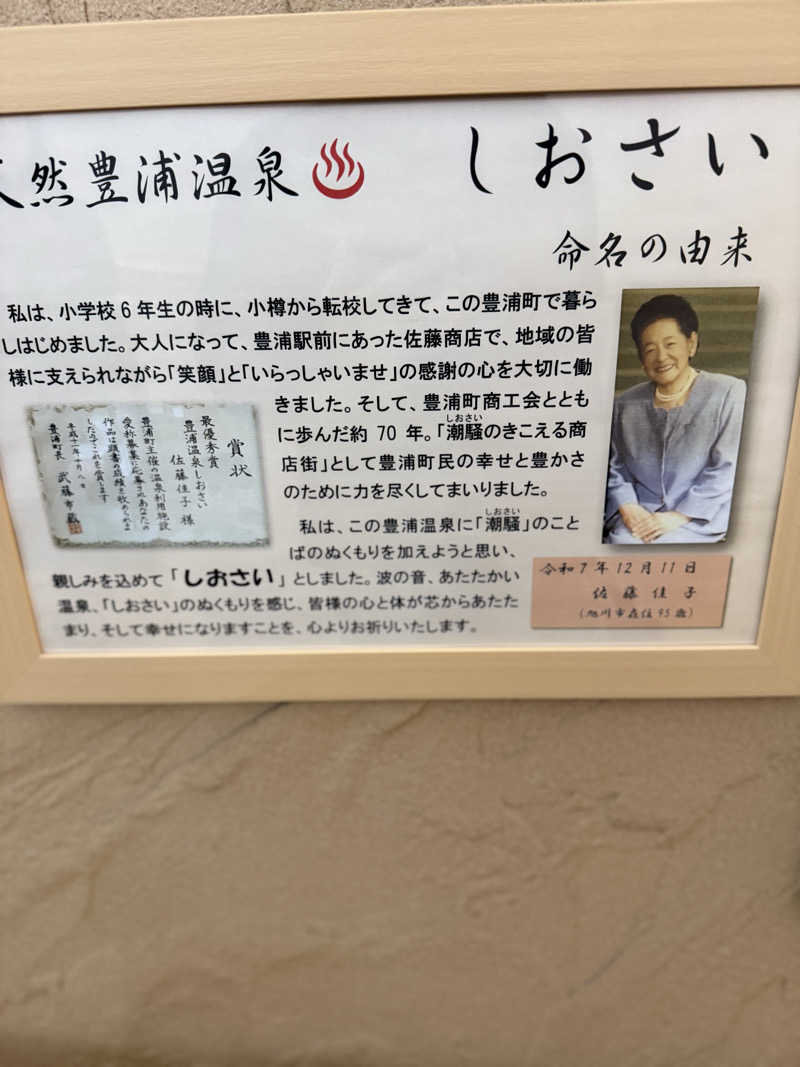 然豊浦温泉
しおさい
命名の由来
私は、小学校6年生の時に、小樽から転校してきて、この豊浦町で暮ら
しはじめました。大人になって、豊浦駅前にあった佐藤商店で、地域の皆
様に支えられながら「笑顔」と「いらっしゃいませ」の感謝の心を大切に働
きました。そして、豊浦町商工会ととも
しおさい
に歩んだ約70年。「潮騒のきこえる商
店街」として豊浦町民の幸せと豊かさ
のために力を尽くしてまいりました。
しおさい
私は、この豊浦温泉に「潮騒」のこと
ばのぬくもりを加えようと思い、
親しみを込めて「しおさい」としました。波の音、あたたかい
温泉、「しおさい」のぬくもりを感じ、皆様の心と体が芯からあたた
まり、そして幸せになりますことを、心よりお祈りいたします。
賞状
最優秀賞
豊浦温泉しおさい
佐藤佳子様
豊浦町主催の温泉利用施設
愛称募集に応募されあなたの
作品は頭書の成績を収められま
したのでこれを賞します
平成十一年十月八日
豊浦町長 武藤市蔵
令和7年12月11日
佐藤佳子
(旭川市在住95歳)